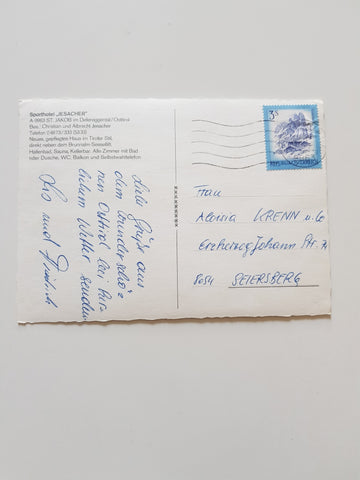 Sporthotel "JESACHER"
A 9963 ST. JAKOB im Defereggental/Osttirol
Bes.: Christian und Albrecht Jesacher
Telefon 04873/333 (5333)
Neues, gepflegtes Haus im Tiroler Stil,
direkt neben dem Brunnalm-Sessellift.
Hallenbad, Sauna, Kellerbar. Alle Zimmer mit Bad
oder Dusche, WC, Balkon und Selbstwahltelefon
Liebe Grüße aus
dem wunderschö=
nen Osttirol bei
lichem Wetter senden
und
3 S
REPUBLIK ÖSTERREICH
Frau
Aloisia KRENN u.
Erzherzog Johann Str.
8054 SEIERSBERG